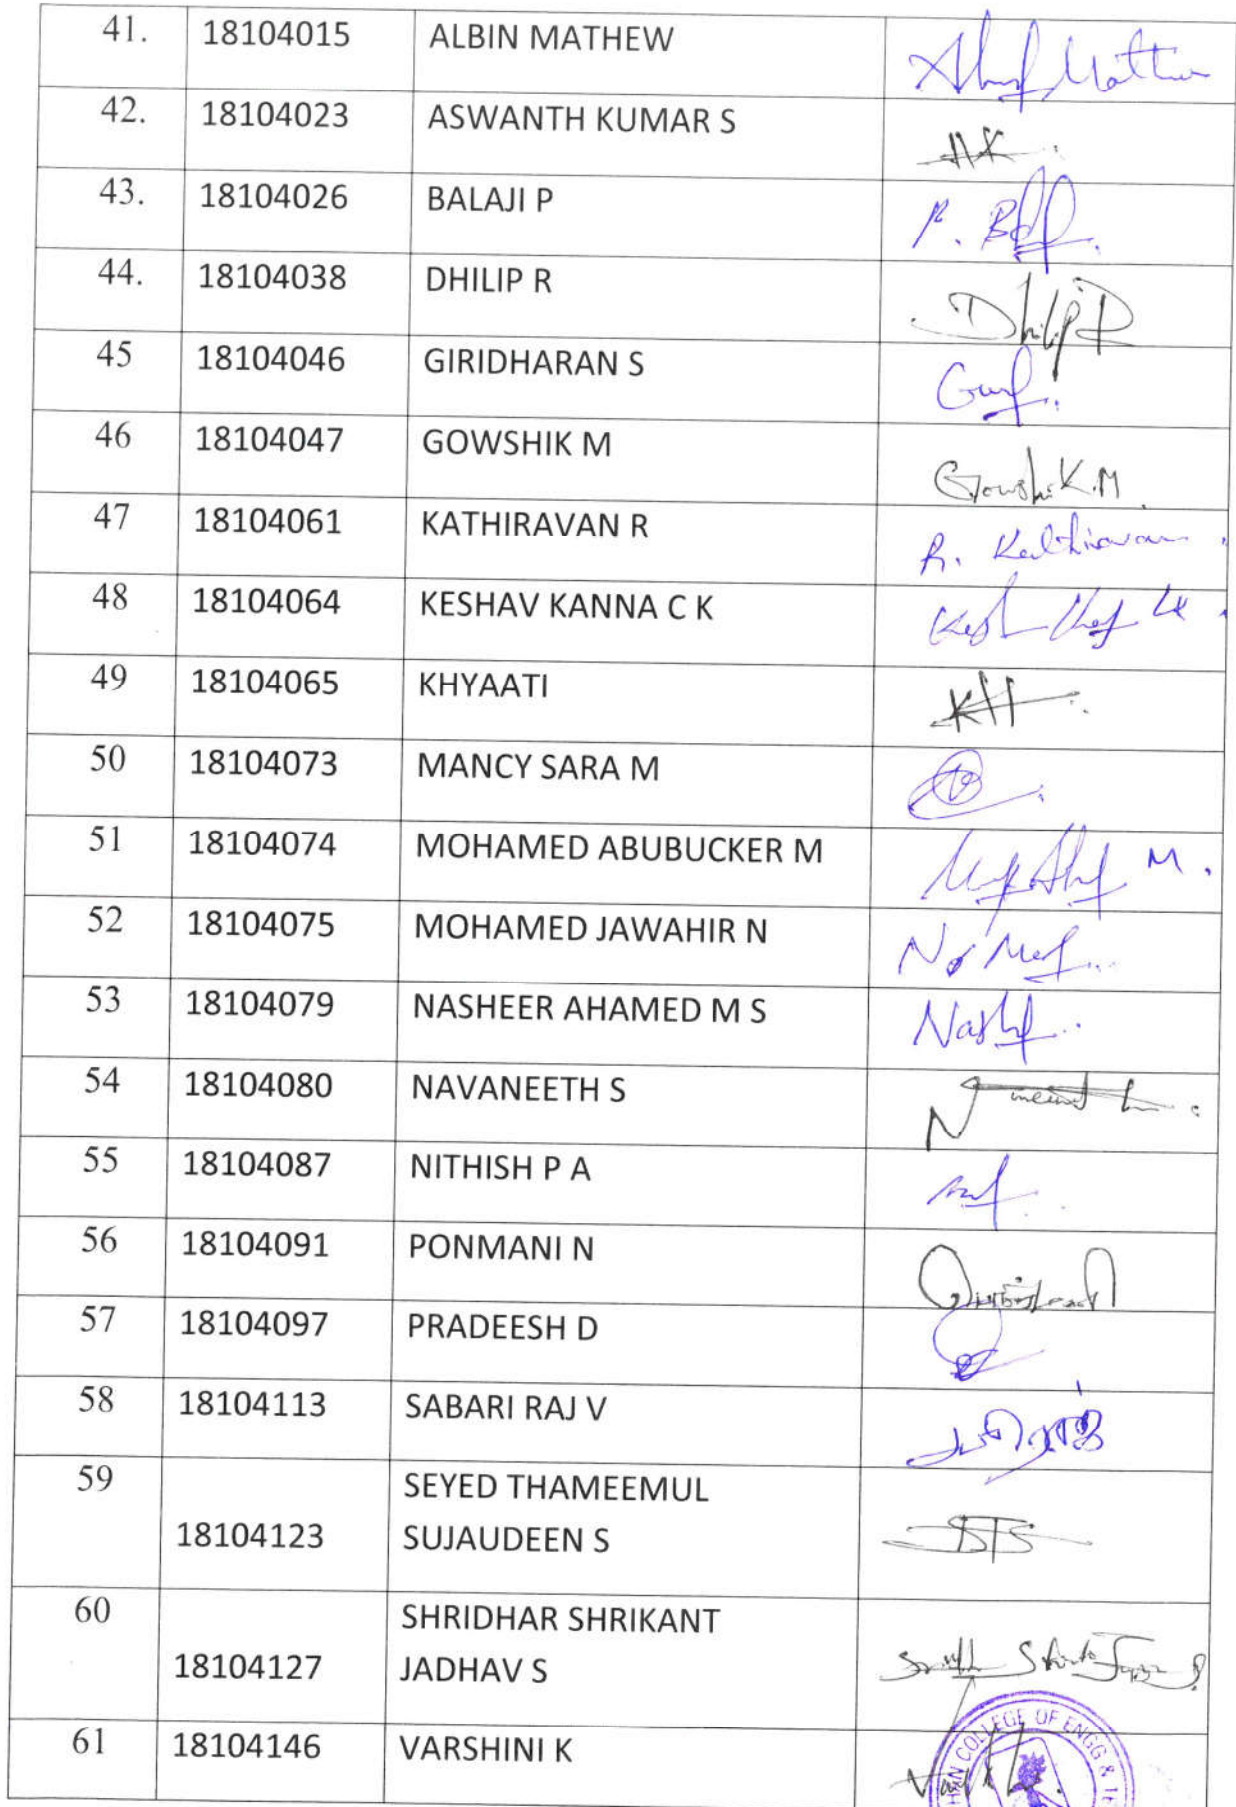 41. 18104015 ALBIN MATHEW
42. 18104023 ASWANTH KUMAR S
AK
43. 18104026 BALAJI P
P.
44. 18104038 DHILIP R
Dhilip R
45 18104046 GIRIDHARAN S
46 18104047 GOWSHIK M
Gowshik.M
47 18104061 KATHIRAVAN R
R. Kathiravan
48 18104064 KESHAV KANNA C K
49 18104065 KHYAATI
50 18104073 MANCY SARA M
51 18104074 MOHAMED ABUBUCKER M
M.
52 18104075 MOHAMED JAWAHIR N
53 18104079 NASHEER AHAMED M S
54 18104080 NAVANEETH S
55 18104087 NITHISH P A
56 18104091 PONMANI N
57 18104097 PRADEESH D
58 18104113 SABARI RAJ V
59 SEYED THAMEEMUL
18104123 SUJAUDEEN S
STS
60 SHRIDHAR SHRIKANT
18104127 JADHAV S
61 18104146 VARSHINI K
COLLEGE OF ENGG &